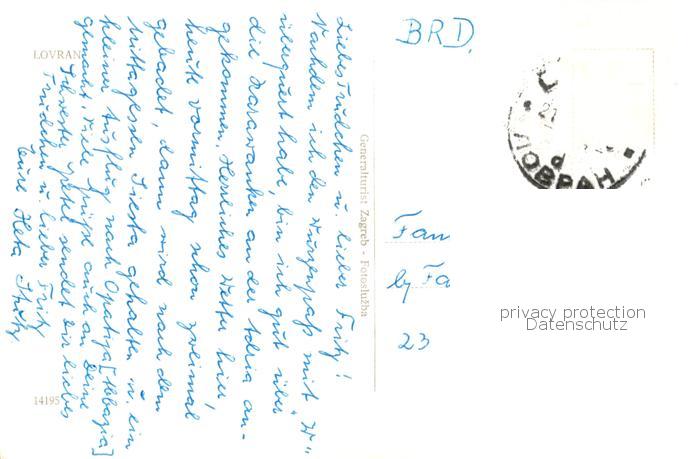 LOVRAN
14195
Generalturist Zagreb - Fotoslužba
Liebes Trudchen u. lieber Fritz!
Nachdem ich den Wurzenpaß mit "W"
überquert habe, bin ich gut über
die Karawanken an der Adria an-
gekommen. Herrliches Wetter hier,
heute vormittag schon zweimal
gebadet, dann wird nach dem
Mittagessen Siesta gehalten u. ein
kleiner Ausflug nach Opatija [Abbazia]
gemacht. Viele Grüße auch an Deine
Schwester Gretel sendet Dir liebes
Trudchen u. lieber Fritz
Eure Herta
BRD.
ЛОВРАН
Fam
by Fa
23
privacy protection
Datenschutz